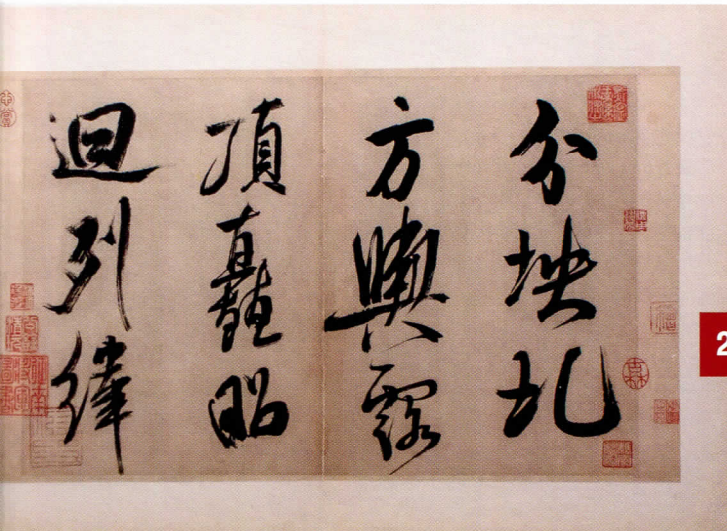 分坱圠
方輿露
頂矗昭
迴列緯
2